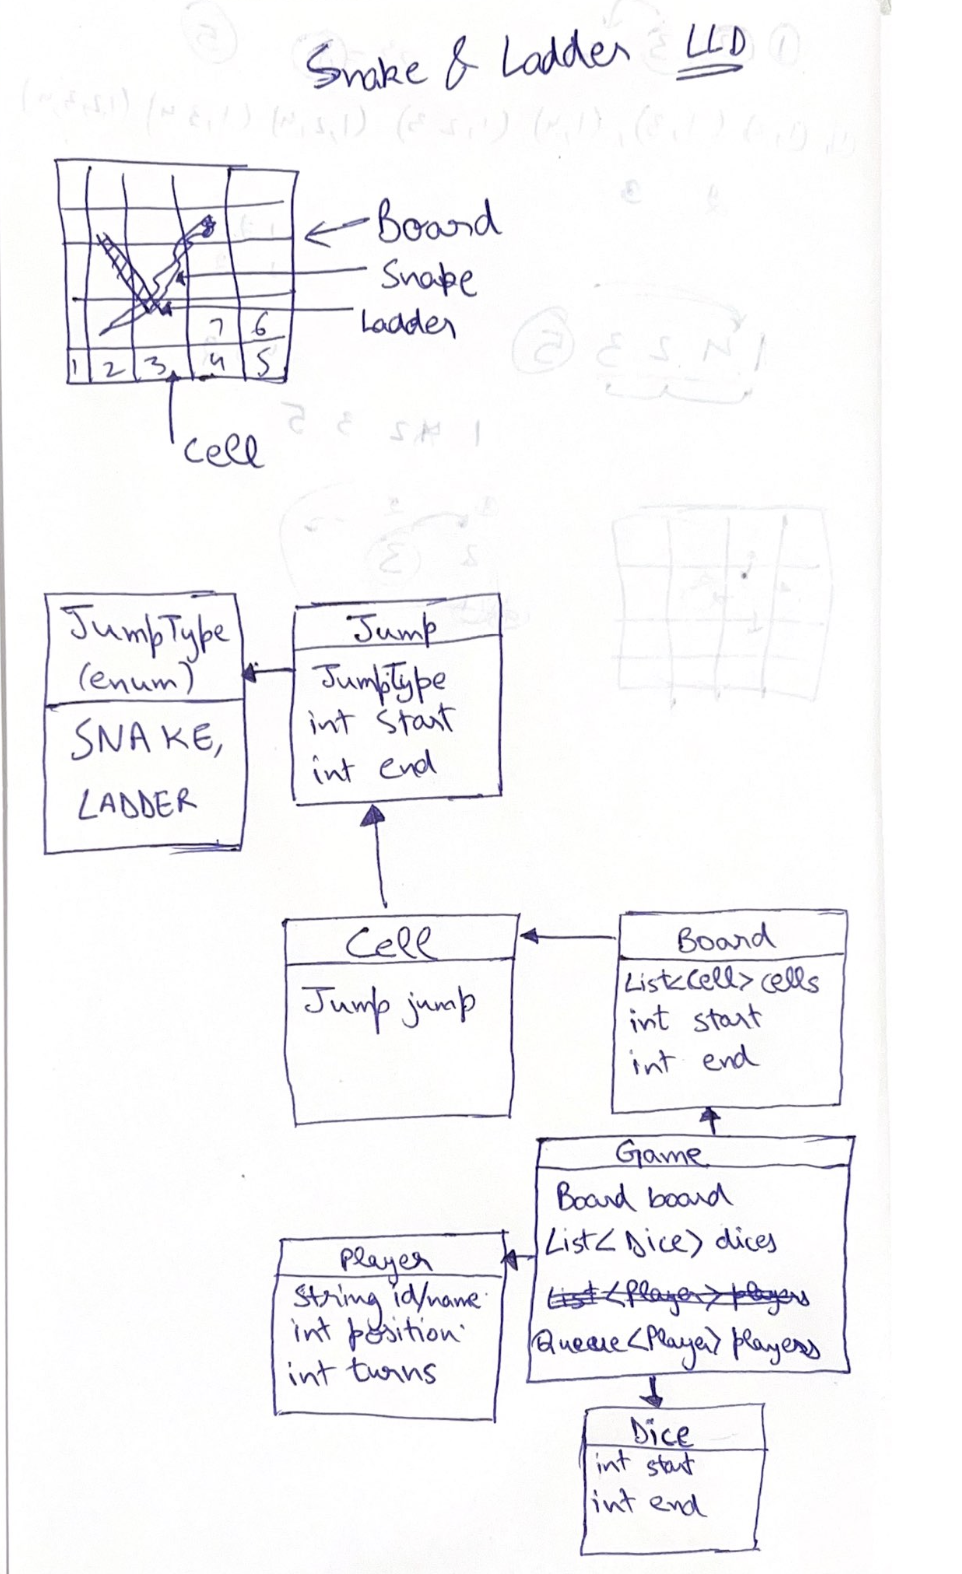 Snake & Ladder LLD
Board
Snake
Ladder
7 6
1 2 3 4 5
Cell
JumpType
(enum)
SNAKE,
LADDER
Jump
JumpType
int Start
int end
Cell
Jump jump
Board
List<Cell> cells
int start
int end
Game
Board board
List<Dice> dices
List<Player> players
Queue<Player> players
Player
String id/name
int position
int turns
Dice
int start
int end